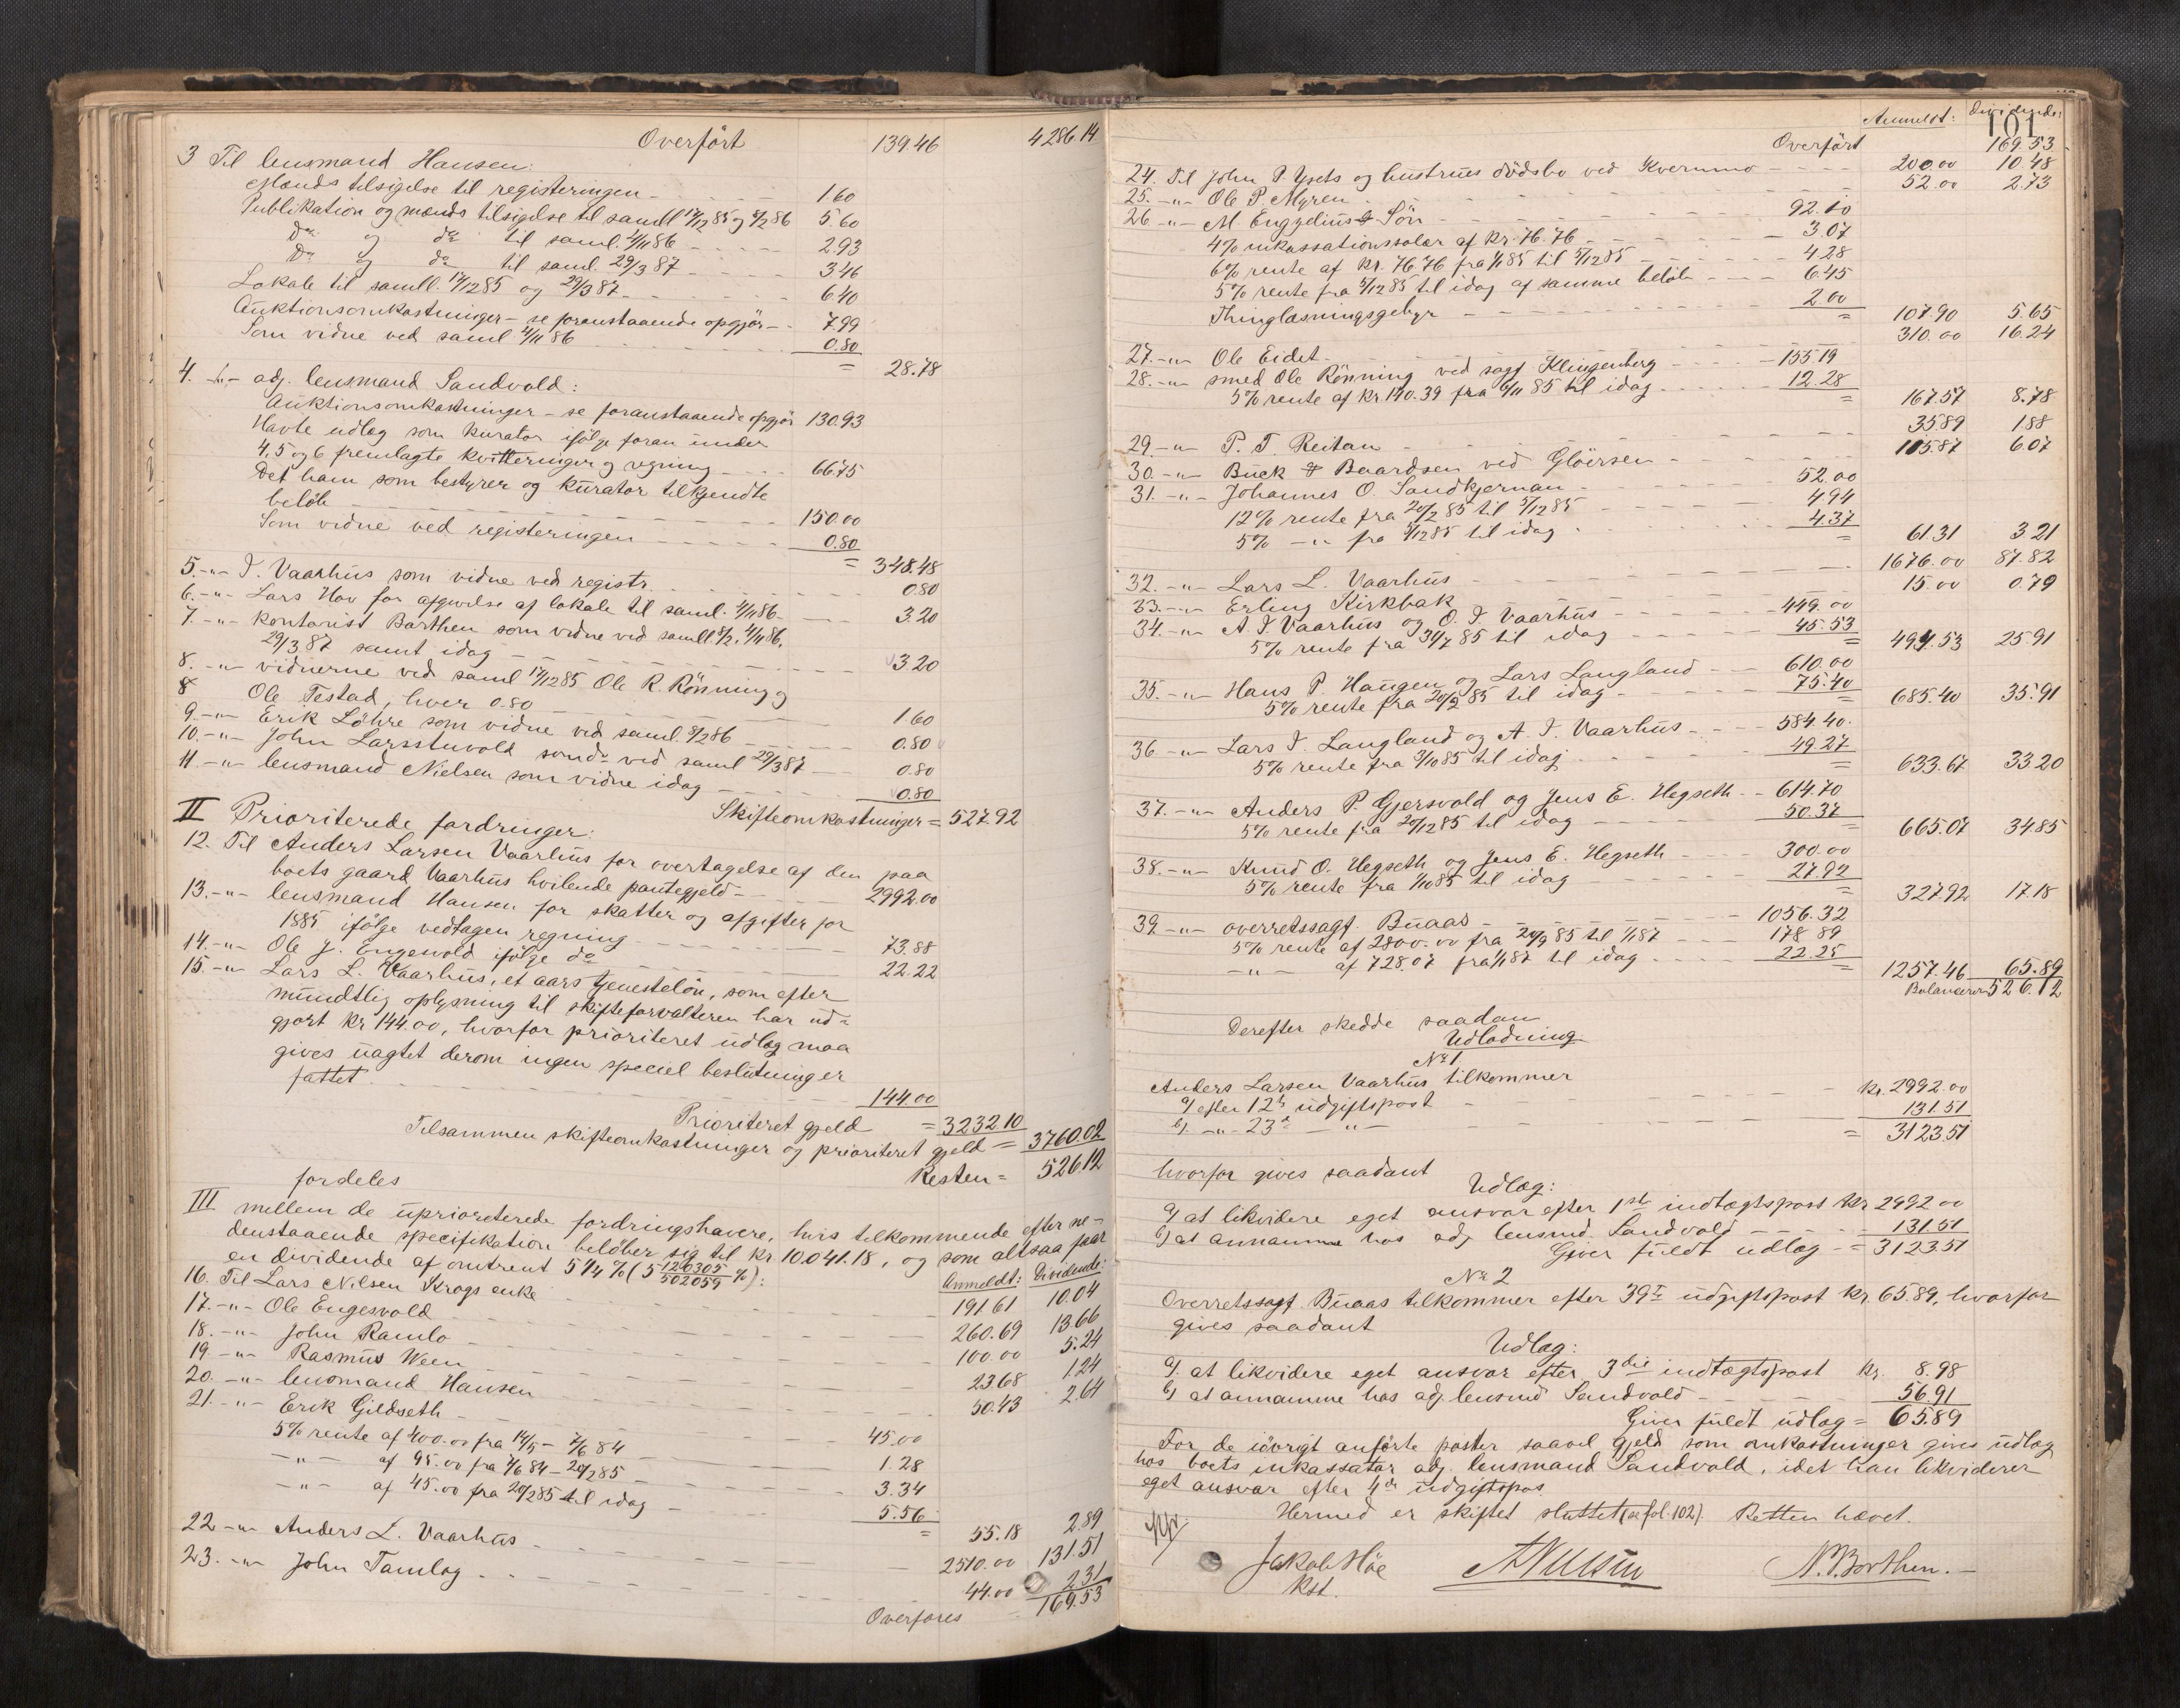 Overført 139.46 4286.14
3 Til lensmand Hansen:
Mænds tilsigelse til registeringen 1.60
Publikation og mænds tilsigelse til samll 17/12 85 og 9/2 86 5.60
Do og do til saml. 4/11 86 2.93
Do og do til saml. 29/3 87 3.46
Lokale til samll. 17/12 85 og 29/3 87 6.40
Auktionsomkostninger – se foranstaaende opgjör 7.99
Som vidne ved saml 4/11 86 0.80
= 28.78
4. -"- adj. lensmand Sandvold:
Auktionsomkostninger – se foranstaaende opgjör 130.93
Havte udlæg som kurator ifölge foran under
4, 5 og 6 fremlagte kvitteringer og regning 66.75
Det ham som bestyrer og kurator tilkjendte
belöb 150.00
Som vidne ved registeringen 0.80
= 348.48
5. -"- I. Vaarhus som vidne ved registr. 0.80
6. -"- Lars Hov for afgivelse af lokale til saml. 4/11 86 3.20
7. -"- kontorist Borthen som vidne ved samll 9/2, 4/11 86,
29/3 87 samt idag 3.20
8. -"- vidnerne ved saml 17/12 85 Ole R. Rönning og
Ole Testad, hver 0.80 1.60
9. -"- Erik Löhre som vidne ved saml. 9/2 86 0.80
10. -"- John Larsstuvold som do ved saml 29/3 87 0.80
11. -"- lensmand Nielsen som vidne idag 0.80
Skifteomkostninger = 527.92
II Prioriterede fordringer:
12. Til Anders Larsen Vaarhus for overtagelse af den paa
boets gaard Vaarhus hvilende pantegjeld 2992.00
13. -"- lensmand Hansen for skatter og afgifter for
1885 ifölge vedtagen regning 73.88
14. -"- Ole J. Engesvold ifölge do 22.22
15. -"- Lars L. Vaarhus, et aars tjenestelön, som efter
mundtlig oplysning til skifteforvalteren har ud-
gjort kr 144.00, hvorfor prioriteret udlæg maa
gives uagtet derom ingen speciel beslutning er
fattet 144.00
Prioriteret gjeld = 3232.10
Tilsammen skifteomkostninger og prioriteret gjeld = 3760.02
Resten = 526.12
fordeles
III mellem de uprioriterede fordringshavere, hvis tilkommende efter ne-
denstaaende specifikation belöber sig til kr 10.041.18, og som altsaa faar
en dividende af omtrent 5 1/4 % (5 120305/502059 %):
Anmeldt: Dividende:
16. Til Lars Nilsen Krogs enke 191.61 10.04
17. -"- Ole Engesvold 260.69 13.66
18. -"- John Ramlo 100.00 5.24
19. -"- Rasmus Ween 23.68 1.24
20. -"- lensmand Hansen 50.43 2.64
21. -"- Erik Gildseth 45.00
5% rente af 400.00 fra 14/5 – 7/6 84 1.28
-"- af 95.00 fra 7/6 84 – 20/2 85 3.34
-"- af 45.00 fra 20/2 85 til idag 5.56
= 55.18 2.89
22 -"- Anders L. Vaarhus 2510.00 131.51
23. -"- John Tamlag 44.00 2.31
Overföres 169.53
101
Anmeldt: Dividende:
Overfört 169.53
24. Til John P. Ysets og hustrues dödsbo ved Kvernmo 200.00 10.48
25. -"- Ole P. Myren 52.00 2.73
26. -"- M Engzelius & Sön 92.10
4% inkassationssalær af kr. 76.76 3.07
6% rente af kr. 76.76 fra 1/1 85 til 5/12 85 4.28
5% rente fra 5/12 85 til idag af samme belöb 6.45
Thinglæsningsgebyr 2.00
= 107.90 5.65
27. -"- Ole Eidet 310.00 16.24
28. -"- smed Ole Rönning ved sagf Klingenberg 155.19
5% rente af kr. 140.39 fra 6/11 85 til idag 12.28
= 167.57 8.78
29. -"- P. T. Reitan 35.89 1.88
30. -"- Buck & Baardsen ved Glöersen 115.87 6.07
31. -"- Johannes O. Sandkjernan 52.00
12% rente fra 20/2 85 til 5/12 85 4.94
5% -"- fra 5/12 85 til idag 4.37
= 61.31 3.21
32. -"- Lars L. Vaarhus 1676.00 87.82
33. -"- Erling Kirkbak 15.00 0.79
34. -"- A. I. Vaarhus og O. I. Vaarhus 449.00
5% rente fra 30/7 85 til idag 45.53
= 494.53 25.91
35. -"- Hans P. Haugen og Lars Langland 610.00
5% rente fra 20/2 85 til idag 75.40
= 685.40 35.91
36. -"- Lars I. Langland og A. I. Vaarhus 584.40
5% rente fra 9/10 85 til idag 49.27
= 633.67 33.20
37. -"- Anders P. Gjersvold og Jens E. Hegseth 614.70
5% rente fra 20/12 85 til idag 50.37
= 665.07 34.85
38. -"- Knud O. Hegseth og Jens E. Hegseth 300.00
5% rente fra 1/10 85 til idag 27.92
= 327.92 17.18
39. -"- overretssagf. Buaas 1056.32
5% rente af 2800.00 fra 20/9 85 til 1/1 87 178.89
-"- af 728.07 fra 1/1 87 til idag 22.25
= 1257.46 65.89
Balancerer 526.12
Derefter skedde saadan
Udlodning
No 1
Anders Larsen Vaarhus tilkommer
a) efter 12te udgiftspost kr. 2992.00
b) -"- 23de -"- 131.51
= 3123.51
hvorfor gives saadant
Udlæg:
a) at likvidere eget ansvar efter 1ste indtægtspost kr 2992 00
b) at annamme hos adj lensmd. Sandvold 131.51
Giver fuldt udlæg = 3123.51
No 2
Overretssagf. Buaas tilkommer efter 39te udgiftspost kr. 65.89, hvorfor
gives saadant
Udlæg:
a). at likvidere eget ansvar efter 3die indtægtspost kr. 8.98
b) at annamme hos adj. lensmd Sandvold 56.91
Giver fuldt udlæg = 65.89
For de iövrigt anförte poster saavel gjeld som omkostninger gives udlæg
hos boets inkassator adj. lensmand Sandvold, idet han likviderer
eget ansvar efter 4de udgiftspos.
Hermed er skiftet sluttet (se fol. 102). Retten hævet.
Jakob Höe A Nielsen N. P. Borthen.
kst.